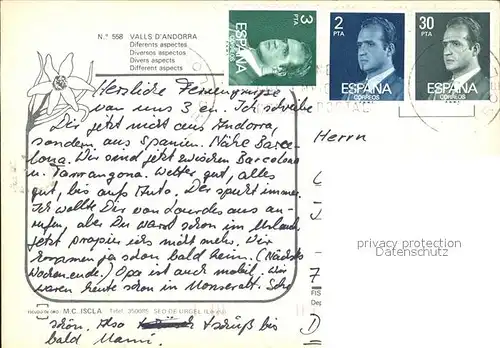 N.° 558 VALLS D'ANDORRA
Diferents aspectes
Diversos aspectos
Divers aspects
Different aspects
3 PTA
ESPAÑA
CORREOS
2 PTA
ESPAÑA
CORREOS
30 PTA
ESPAÑA
CORREOS
Herzliche Feriengrüsse
von uns 3 en. Ich schreibe
Dir jetzt nicht aus Andorra,
sondern aus Spanien. Nähe Barce-
lona. Wir sind jetzt zwischen Barcelona
u. Tarragona. Wetter gut, alles
gut, bis aufs Auto. Der spukt immer.
Ich wollte Dir von Lourdes aus an-
rufen, aber Du warst schon im Urlaub.
Jetzt probier ichs nicht mehr. Wir
kommen ja schon bald heim. (Nächstes
Wochenende.) Opa ist auch mobil. Wir
waren heute schon in Monserat. Sehr
M.C. ISCLA SEO DE URGEL (Lérida)
schön. Also tschüß bis
bald Mami.
Herrn
privacy protection
Datenschutz